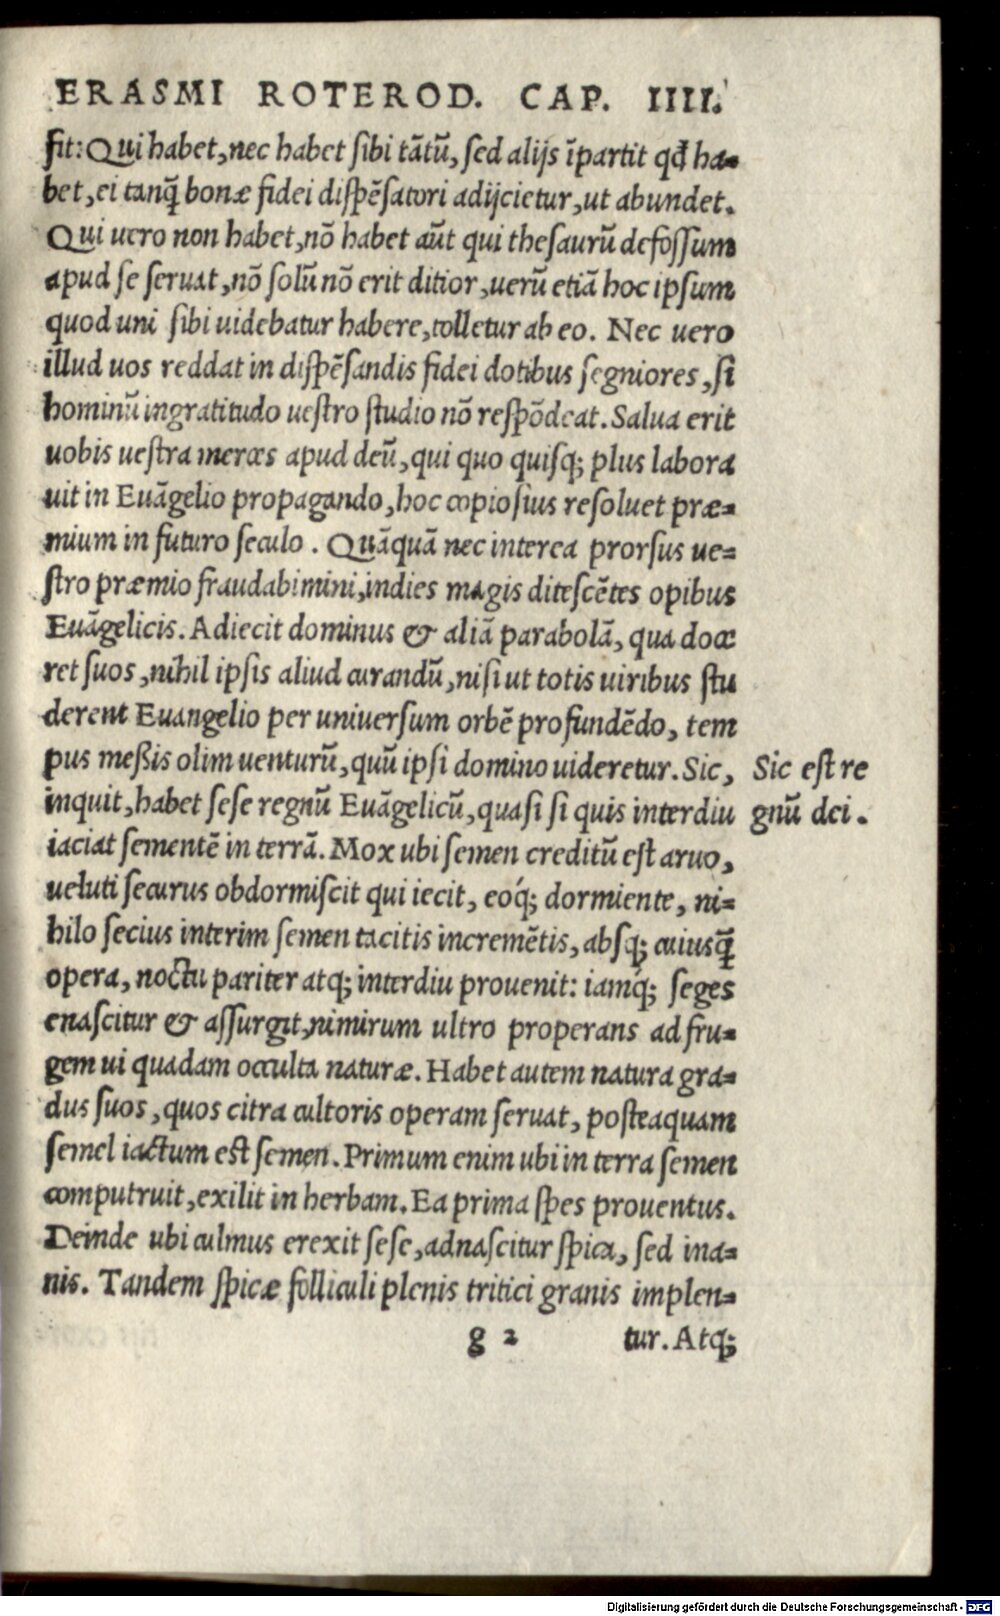 ERASMI ROTEROD. CAP. IIII.
fit: Qui habet, nec habet sibi tãtũ, sed alijs ĩpartit qđ ha-
bet, ei tanq̃ bonæ fidei dispẽsatori adijcietur, ut abundet.
Qui uero non habet, nõ habet aũt qui thesaurũ defossum
apud se seruat, nõ solũ nõ erit ditior, uerũ etiã hoc ipsum
quod uni sibi uidebatur habere, tolletur ab eo. Nec uero
illud uos reddat in dispẽsandis fidei dotibus segniores, si
hominũ ingratitudo uestro studio nõ respõdeat. Salua erit
uobis uestra merces apud deũ, qui quo quisq; plus labora
uit in Euãgelio propagando, hoc copiosius resoluet præ-
mium in futuro seculo. Quãquã nec interea prorsus ue-
stro præmio fraudabimini, indies magis ditescẽtes opibus
Euãgelicis. Adiecit dominus & aliã parabolã, qua doce
ret suos, nihil ipsis aliud curandũ, nisi ut totis uiribus stu
derent Euangelio per uniuersum orbẽ profundẽdo, tem
pus meßis olim uenturũ, quũ ipsi domino uideretur. Sic,
inquit, habet sese regnũ Euãgelicũ, quasi si quis interdiu
iaciat sementẽ in terrã. Mox ubi semen creditũ est aruo,
ueluti securus obdormiscit qui iecit, eóq; dormiente, ni-
hilo secius interim semen tacitis incremẽtis, absq; cuiusq̃
opera, noctu pariter atq; interdiu prouenit: iamq́; seges
enascitur & assurgit, nimirum ultro properans ad fru-
gem ui quadam occulta naturæ. Habet autem natura gra-
dus suos, quos citra cultoris operam seruat, posteaquam
semel iactum est semen. Primum enim ubi in terra semen
computruit, exilit in herbam. Ea prima spes prouentus.
Deinde ubi culmus erexit sese, adnascitur spica, sed ina-
nis. Tandem spicæ folliculi plenis tritici granis implen-
g 2 tur. Atq;
Sic est re
gnũ dei.
Digitalisierung gefördert durch die Deutsche Forschungsgemeinschaft - DFG